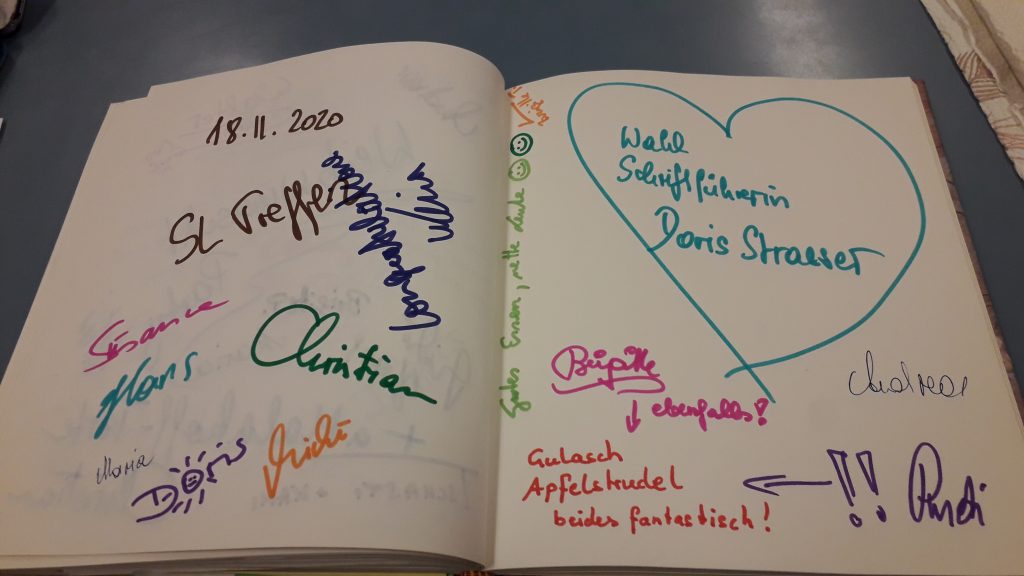 18.11.2020
SL Treffen
Christian
Hans
Maria
Doris
Gutes Essen, nette Leute
Wahl
Schriftführerin
Doris Strasser
Brigitte
ebenfalls!
Andreas
Gulasch
Apfelstrudel
beides fantastisch!
!! Rudi